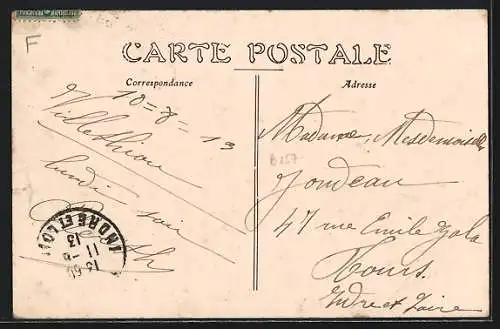 F
CARTE POSTALE
Correspondance
Adresse
10 = 8 = 13
Villethiou
lundi soir
Madame, Mesdemoiselles
B257
Jondeau
47 rue Emile Zola
Tours
Indre et Loire
INDRE ET LOI
11 - 8
13